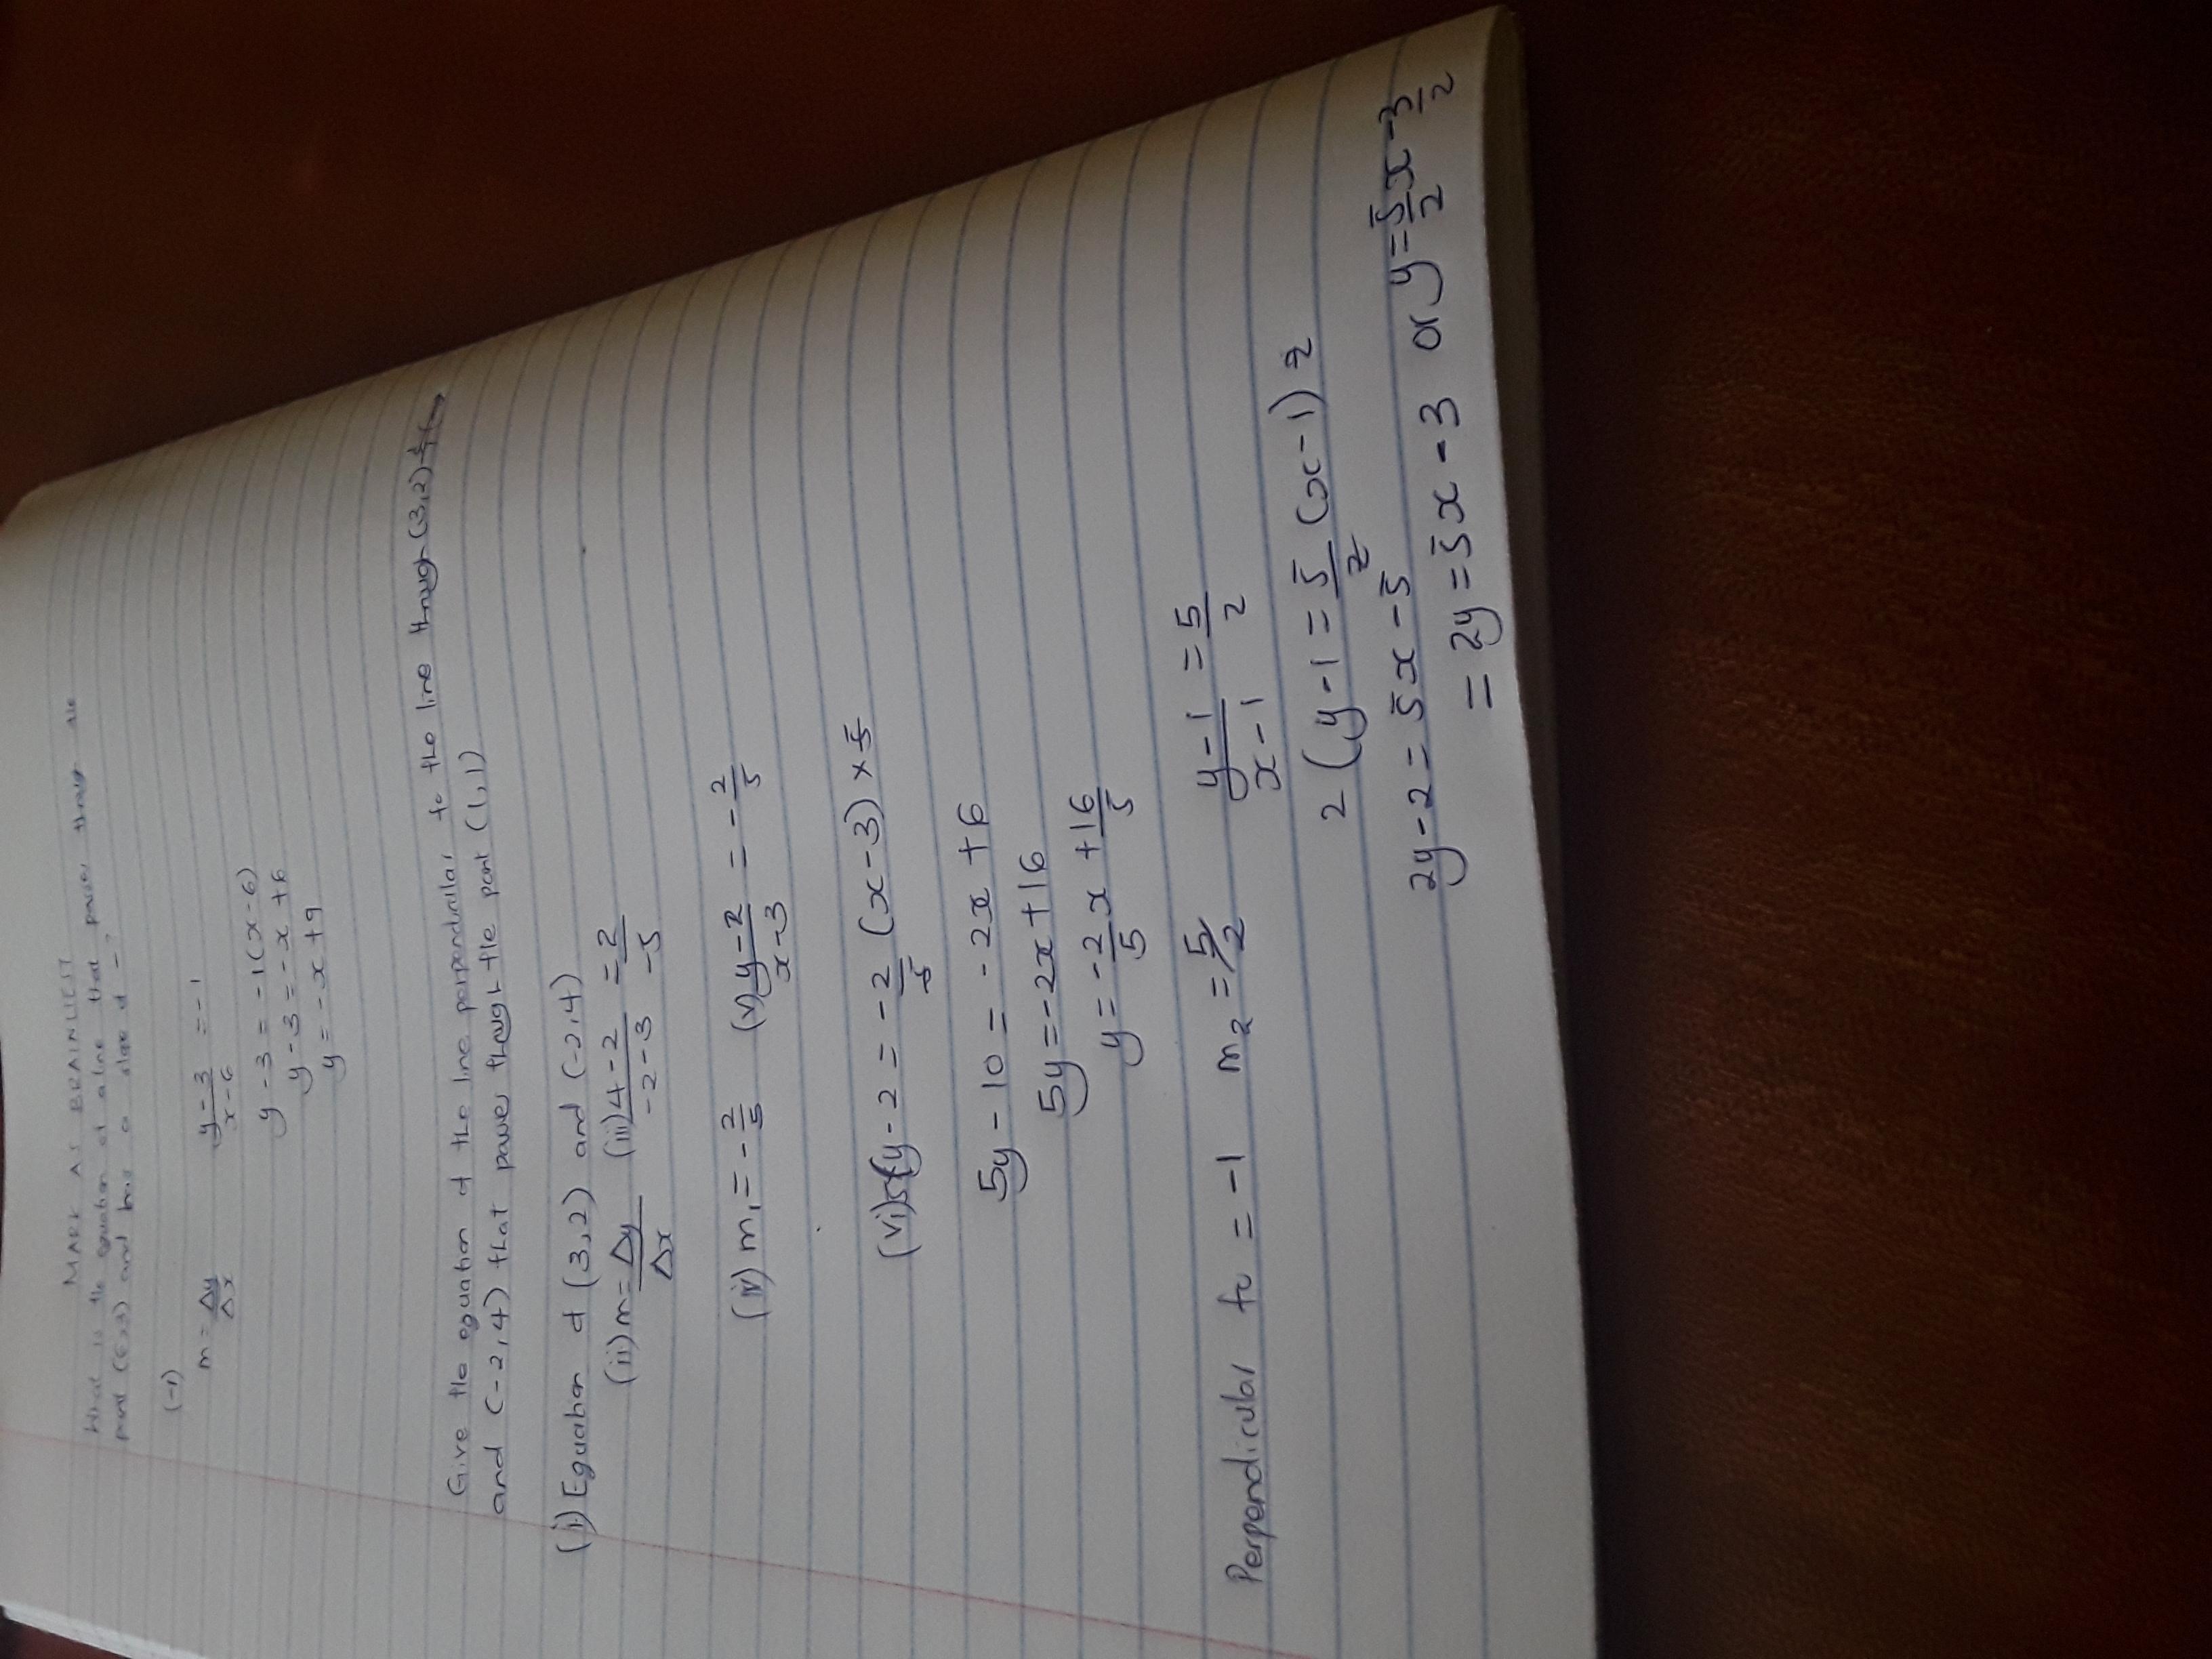 MARK AS BRAINLIEST
What is the equation of a line that passes through the
point (6,3) and has a slope of -
(-1)
m = Δy/Δx    y-3/x-6 = -1
y - 3 = -1(x-6)
y - 3 = -x + 6
y = -x + 9
Give the equation of the line perpendicular to the line through (3,2)
and (-2,4) that passes through the point (1,1)
(i) Equation of (3,2) and (-2,4)
(ii) m = Δy/Δx (iii) 4-2/-2-3 = 2/-5
(iv) m₁ = -2/5 (v) y-2/x-3 = -2/5
(vi) 5(y-2 = -2/5 (x-3) × 5
5y - 10 = -2x + 6
5y = -2x + 16
y = -2/5 x + 16/5
Perpendicular to = -1 m₂ = 5/2 y-1/x-1 = 5/2
2(y-1 = 5/2 (x-1) 2
2y - 2 = 5x - 5
= 2y = 5x - 3 or y = 5/2 x - 3/2